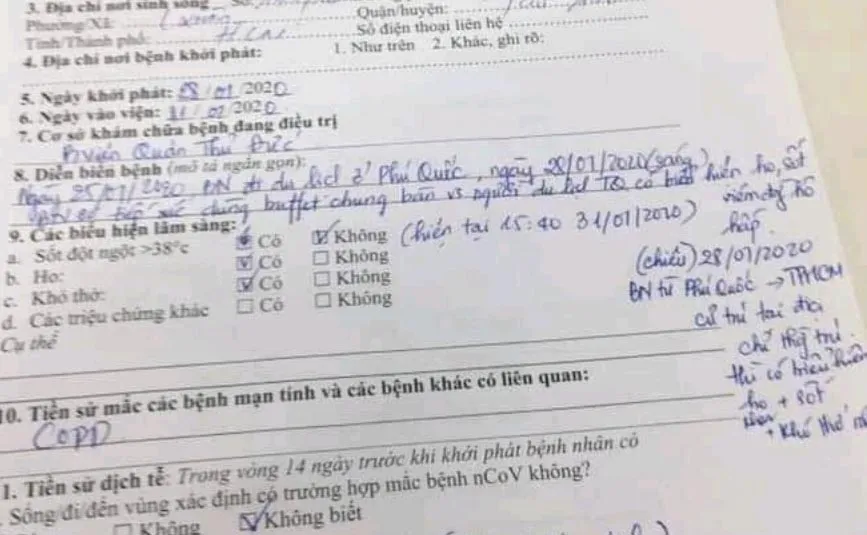 3. Địa chỉ nơi sinh sống
Phường/Xã: Quận/huyện:
Tỉnh/Thành phố: HCM Số điện thoại liên hệ
4. Địa chỉ nơi bệnh khởi phát: 1. Như trên 2. Khác, ghi rõ:
5. Ngày khởi phát: 28/01/2020
6. Ngày vào viện: 31/01/2020
7. Cơ sở khám chữa bệnh đang điều trị
Bviện Quân Thủ Đức
8. Diễn biến bệnh (mô tả ngắn gọn):
Ngày 25/01/2020 BN đi du lịch ở Phú Quốc, ngày 28/01/2020 (sáng)
BN có tiếp xúc dùng buffet chung bàn vs người du lịch TQ có biểu hiện ho, sốt
viêm hô
hấp.
9. Các biểu hiện lâm sàng:
a. Sốt đột ngột >38°c Có Không (hiện tại 15:40 31/01/2020)
b. Ho: Có Không
c. Khó thở: Có Không
d. Các triệu chứng khác Có Không
Cụ thể
(chiều) 28/01/2020
BN từ Phú Quốc → TPHCM
cư trú tại địa
chỉ trú
thì có biểu hiện
ho + sốt
+ khó thở
10. Tiền sử mắc các bệnh mạn tính và các bệnh khác có liên quan:
COPD
1. Tiền sử dịch tễ: Trong vòng 14 ngày trước khi khởi phát bệnh nhân có
Sống/đi/đến vùng xác định có trường hợp mắc bệnh nCoV không?
Không Không biết